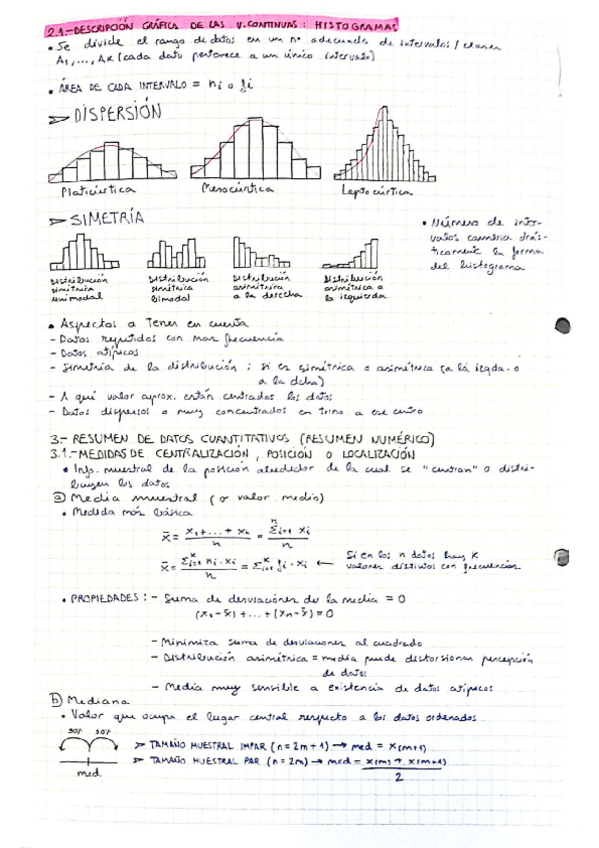 2.1.-DESCRIPCIÓN GRÁFICA DE LAS V.CONTINUAS: HISTOGRAMAS
• Se divide el rango de datos en un nº adecuado de intervalos / clases
A1,..., AK (cada dato pertenece a un único intervalo)
• ÁREA DE CADA INTERVALO = ni o fi
➤ DISPERSIÓN
Platicúrtica Mesocúrtica Leptocúrtica
➤ SIMETRÍA
• Número de inter-
valos cambia drás-
ticamente la forma
del histograma
Distribución simétrica unimodal
Distribución simétrica bimodal
Distribución asimétrica a la derecha
Distribución asimétrica a la izquierda
• Aspectos a tener en cuenta
- Datos repetidos con mas frecuencia
- Datos atípicos
- Simetría de la distribución: si es simétrica o asimétrica (a la izqda. o
a la dcha)
- A qué valor aprox. están centrados los datos
- Datos dispersos o muy concentrados en torno a ese centro
3.- RESUMEN DE DATOS CUANTITATIVOS (RESUMEN NUMÉRICO)
3.1.-MEDIDAS DE CENTRALIZACIÓN, POSICIÓN O LOCALIZACIÓN
• Info. muestral de la posición alrededor de la cual se "centran" o distri-
buyen los datos
a) Media muestral (o valor medio)
• Medida más básica
x̄ = x1+...+xn / n = Σⁿi=1 xi / n
x̄ = Σᵏi=1 ni·xi / n = Σᵏi=1 fi·xi ← Si en los n datos hay K
valores distintos con frecuencias
• PROPIEDADES: - Suma de desviaciones de la media = 0
(x1-x̄)+...+(xn-x̄)=0
- Minimiza suma de desviaciones al cuadrado
- Distribución asimétrica = media puede distorsionar percepción
de datos
- Media muy sensible a existencia de datos atípicos
b) Mediana
• Valor que ocupa el lugar central respecto a los datos ordenados
50% 50%
➤ TAMAÑO MUESTRAL IMPAR (n=2m+1) → med = x(m+1)
➤ TAMAÑO MUESTRAL PAR (n=2m) → med = x(m) + x(m+1) / 2
med